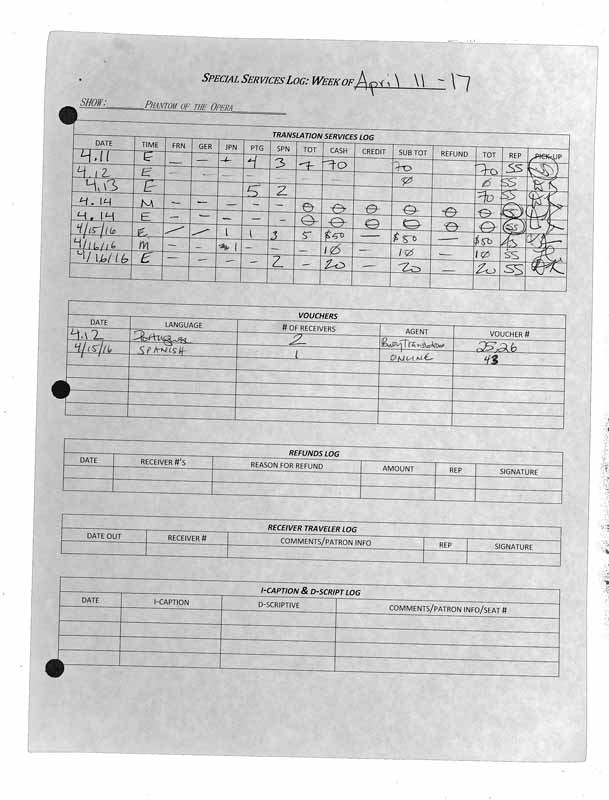 SPECIAL SERVICES LOG: WEEK OF April 11-17
SHOW: PHANTOM OF THE OPERA
TRANSLATION SERVICES LOG
DATE TIME FRN GER JPN PTG SPN TOT CASH CREDIT SUB TOT REFUND TOT REP PICK-UP
4.11 E — — + 4 3 7 70 70 70 SS
4.12 E — — — — — 0 0 SS
4.13 E 5 2 70 SS
4.14 M — — — — — 0 0 0 0 0 0 SS
4.14 E — — — — — 0 0 0 0 0 0 SS
4/15/16 E / / 1 1 3 5 $50 — $50 — $50
4/16/16 M — — 1 — — 10 — 10 — 10 SS
4/16/16 E — — — — 2 — 20 — 20 — 20 SS
VOUCHERS
DATE LANGUAGE # OF RECEIVERS AGENT VOUCHER #
4.12 2 2526
4/15/16 SPANISH 1 ONLINE 43
REFUNDS LOG
DATE RECEIVER #'S REASON FOR REFUND AMOUNT REP SIGNATURE
RECEIVER TRAVELER LOG
DATE OUT RECEIVER # COMMENTS/PATRON INFO REP SIGNATURE
I-CAPTION & D-SCRIPT LOG
DATE I-CAPTION D-SCRIPTIVE COMMENTS/PATRON INFO/SEAT #